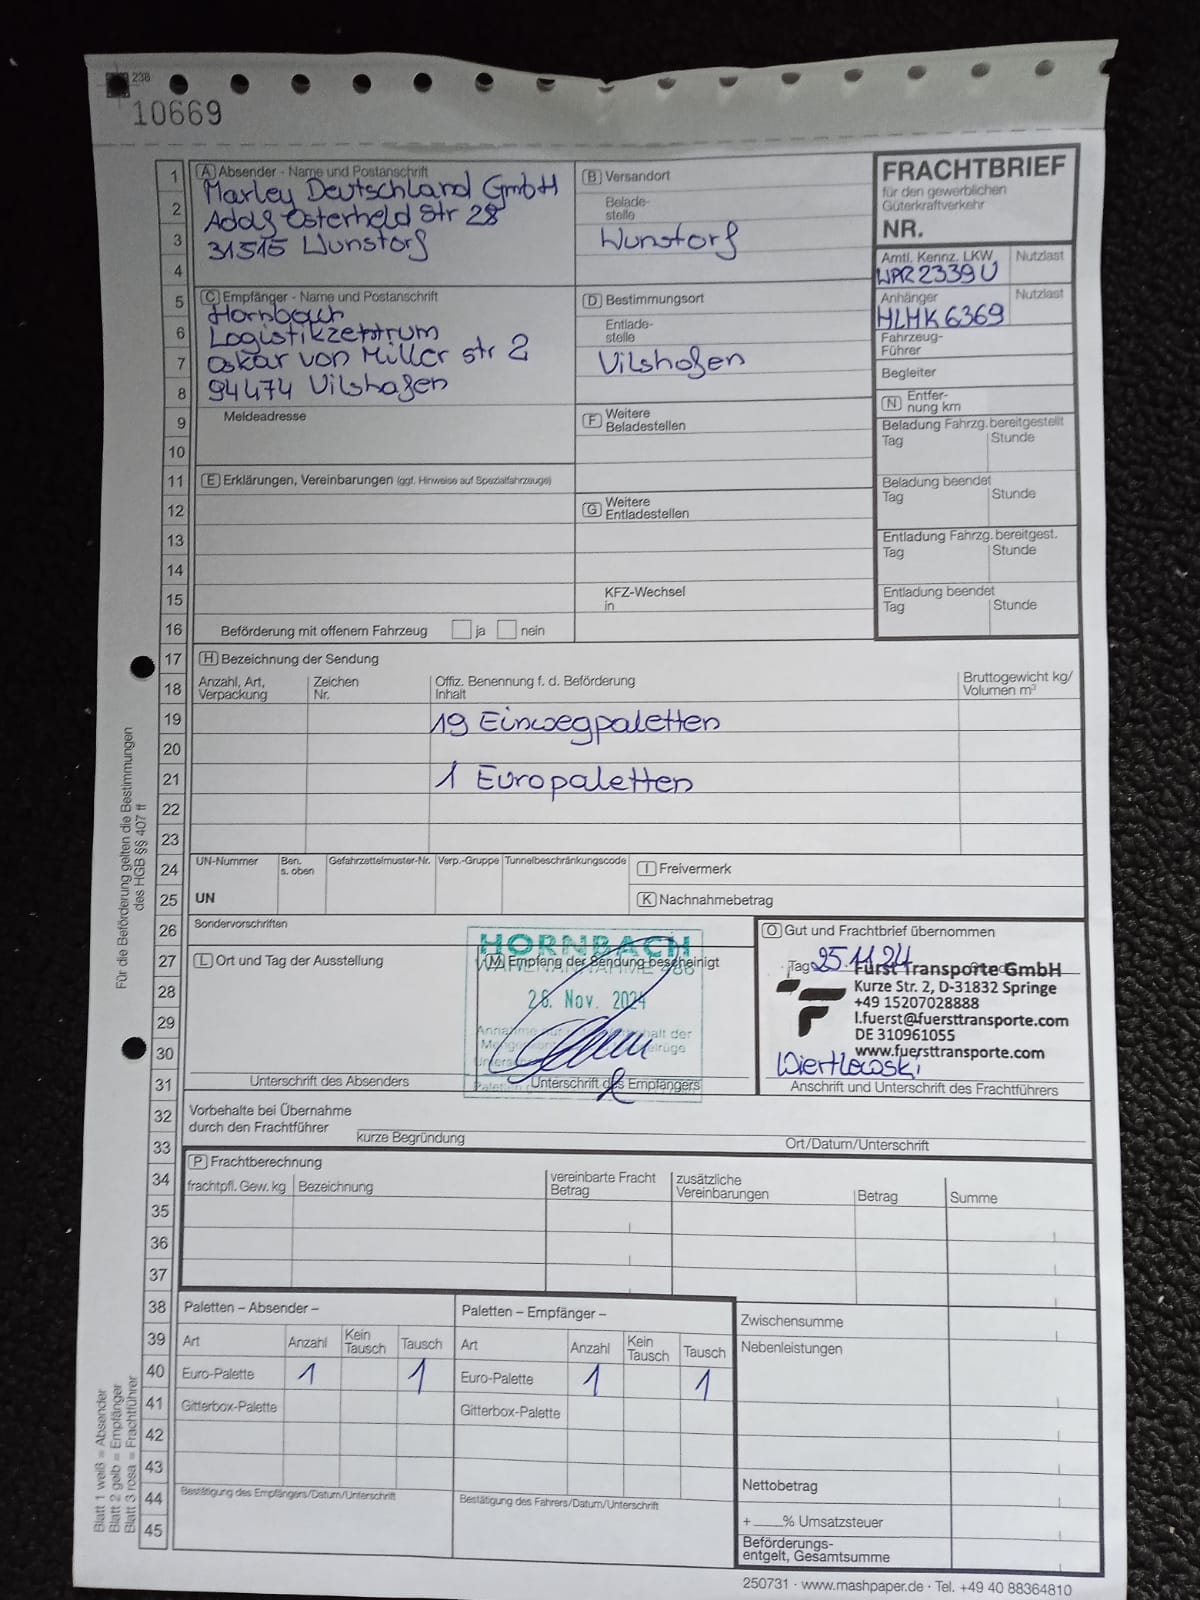 238
10669
A Absender - Name und Postanschrift
Marley Deutschland GmbH
Adolf Osterheld Str 28
31515 Wunstorf
B Versandort
Belade-
stelle
Wunstorf
FRACHTBRIEF
für den gewerblichen
Güterkraftverkehr
NR.
Amtl. Kennz. LKW
Nutzlast
WPR2339U
Anhänger
Nutzlast
HLHK6369
Fahrzeug-
Führer
Begleiter
N Entfer-
nung km
C Empfänger - Name und Postanschrift
Hornbach
Logistikzentrum
Oskar von Miller str 2
94474 Vilshofen
D Bestimmungsort
Entlade-
stelle
Vilshofen
Meldeadresse
F Weitere
Beladestellen
Beladung Fahrzg. bereitgestellt
Tag Stunde
Beladung beendet
Tag Stunde
Entladung Fahrzg. bereitgest.
Tag Stunde
Entladung beendet
Tag Stunde
E Erklärungen, Vereinbarungen (ggf. Hinweise auf Spezialfahrzeuge)
G Weitere
Entladestellen
KFZ-Wechsel
in
Beförderung mit offenem Fahrzeug ja nein
H Bezeichnung der Sendung
Anzahl, Art,
Verpackung
Zeichen
Nr.
Offiz. Benennung f. d. Beförderung
Inhalt
Bruttogewicht kg/
Volumen m³
19 Einwegpaletten
1 Europaletten
UN-Nummer
Ben.
s. oben
Gefahrzettelmuster-Nr.
Verp.-Gruppe
Tunnelbeschränkungscode
UN
I Freivermerk
K Nachnahmebetrag
Sondervorschriften
L Ort und Tag der Ausstellung
Unterschrift des Absenders
HORNBACH
WARENANNAHME 486
M Empfang der Sendung bescheinigt
26. Nov. 2024
Unterschrift des Empfängers
O Gut und Frachtbrief übernommen
Tag 25.11.24
Fürst Transporte GmbH
Kurze Str. 2, D-31832 Springe
+49 15207028888
l.fuerst@fuersttransporte.com
DE 310961055
www.fuersttransporte.com
Wiertlewski
Anschrift und Unterschrift des Frachtführers
Vorbehalte bei Übernahme
durch den Frachtführer
kurze Begründung
Ort/Datum/Unterschrift
P Frachtberechnung
frachtpfl. Gew. kg
Bezeichnung
vereinbarte Fracht
Betrag
zusätzliche
Vereinbarungen
Betrag
Summe
Paletten – Absender –
Art Anzahl Kein Tausch Tausch
Euro-Palette 1 1
Gitterbox-Palette
Bestätigung des Empfängers/Datum/Unterschrift
Paletten – Empfänger –
Art Anzahl Kein Tausch Tausch
Euro-Palette 1 1
Gitterbox-Palette
Bestätigung des Fahrers/Datum/Unterschrift
Zwischensumme
Nebenleistungen
Nettobetrag
+ ___% Umsatzsteuer
Beförderungs-
entgelt, Gesamtsumme
250731 · www.mashpaper.de · Tel. +49 40 88364810
Für die Beförderung gelten die Bestimmungen
des HGB §§ 407 ff
Blatt 1 weiß = Absender
Blatt 2 gelb = Empfänger
Blatt 3 rosa = Frachtführer
1
2
3
4
5
6
7
8
9
10
11
12
13
14
15
16
17
18
19
20
21
22
23
24
25
26
27
28
29
30
31
32
33
34
35
36
37
38
39
40
41
42
43
44
45